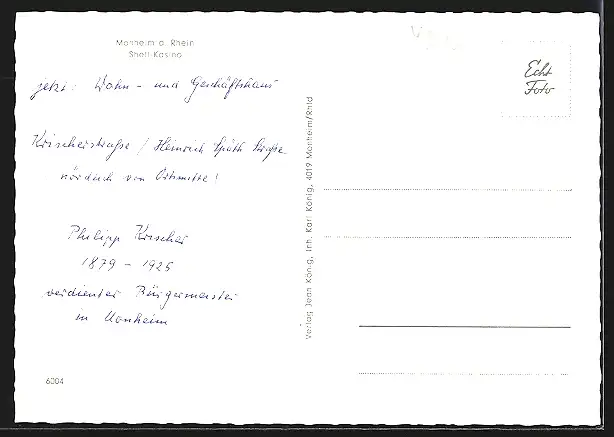 Monheim a. Rhein
Shell-Kasino
jetzt: Wohn- und Geschäftshaus
Krischerstraße / Heinrich Späth Straße
nördlich von Ortsmitte!
Philipp Krischer
1879 - 1926
verdienter Bürgermeister
in Monheim
6204
Verlag Jean König, Inh. Karl König, 4019 Monheim/Rhld
Echt
Foto